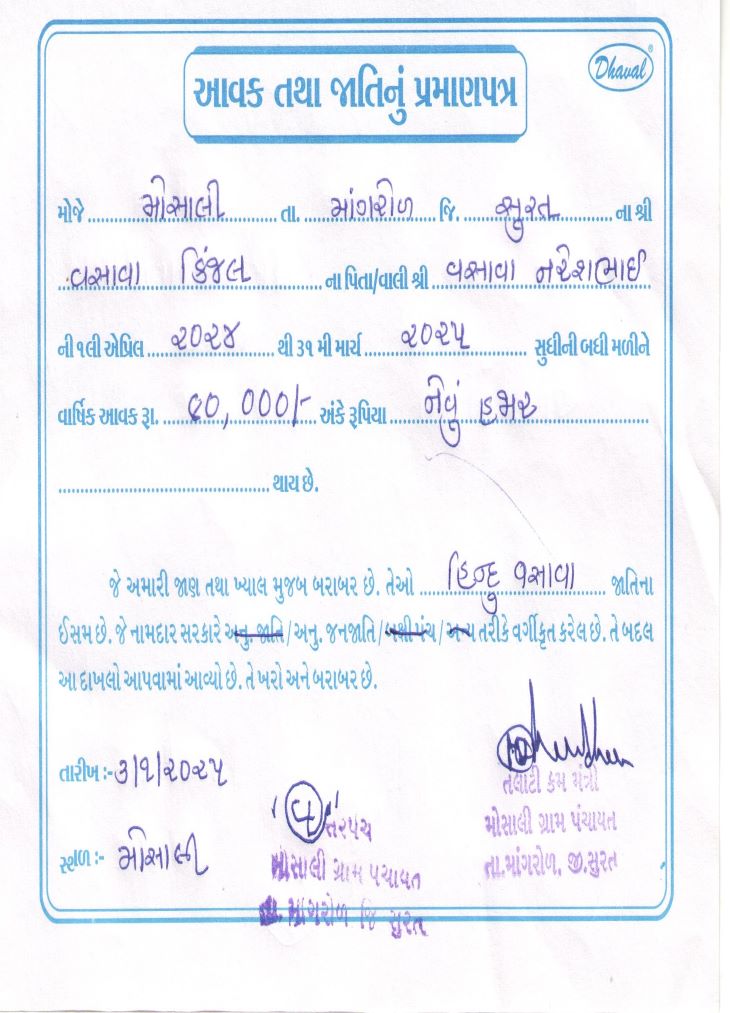 આવક તથા જાતિનું પ્રમાણપત્ર
Dhaval
મોજે મોસાલી તા. માંગરોળ જિ. સુરત ના શ્રી
વસાવા કિંજલ ના પિતા/વાલી શ્રી વસાવા નરેશભાઈ
ની ૧લી એપ્રિલ ૨૦૨૪ થી ૩૧ મી માર્ચ ૨૦૨૫ સુધીની બધી મળીને
વાર્ષિક આવક રૂા. ૯૦,૦૦૦/- અંકે રૂપિયા નેવું હજાર
થાય છે.
જે અમારી જાણ તથા ખ્યાલ મુજબ બરાબર છે. તેઓ હિન્દુ વસાવા જાતિના
ઈસમ છે. જે નામદાર સરકારે અનુ. જાતિ/અનુ. જનજાતિ/બક્ષીપંચ/અન્ય તરીકે વર્ગીકૃત કરેલ છે. તે બદલ
આ દાખલો આપવામાં આવ્યો છે. તે ખરો અને બરાબર છે.
તારીખ :- ૩/૧/૨૦૨૫
સ્થળ :- મોસાલી
સરપંચ
મોસાલી ગ્રામ પંચાયત
તા. માંગરોળ જિ સુરત
તલાટી કમ મંત્રી
મોસાલી ગ્રામ પંચાયત
તા.માંગરોળ, જી.સુરત